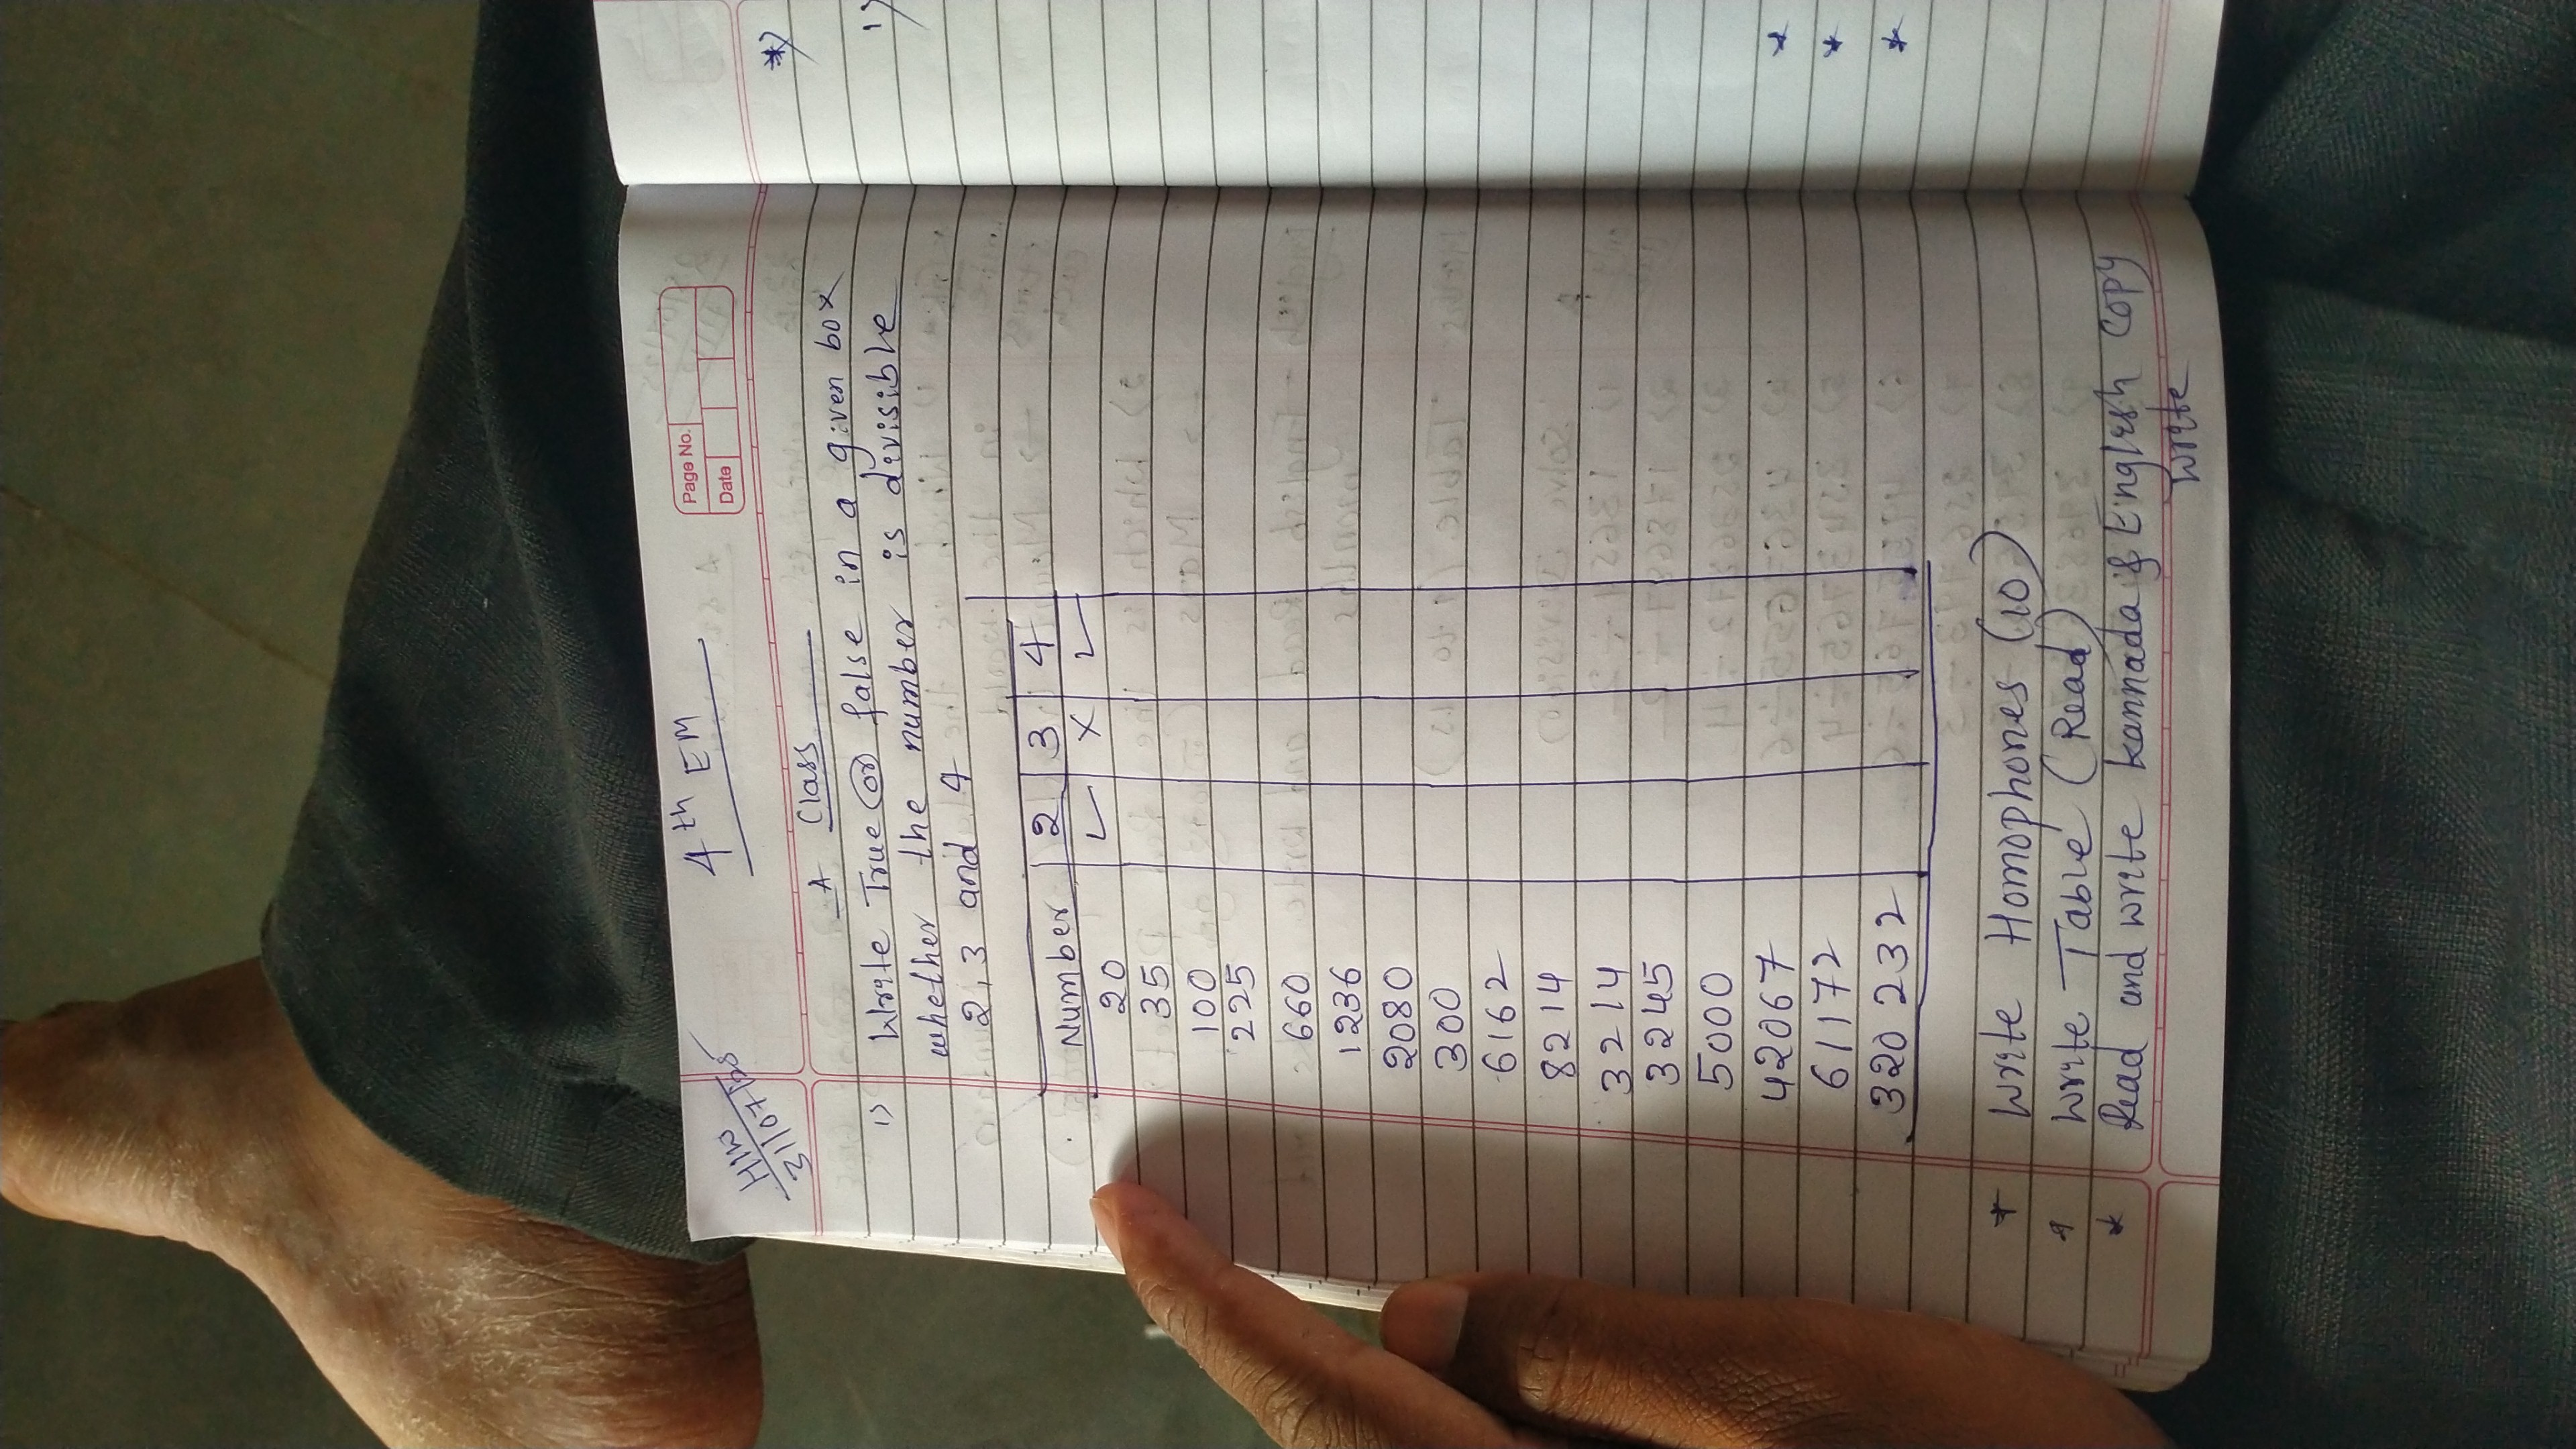 H/W
31/07/25
4th EM
Page No.
Date
A Class
1) Write True or false in a given box
whether the number is divisible
2, 3 and 4
Number 2 3 4
20 ✓ × ✓
35
100
225
660
1236
2080
300
6162
8214
3214
3245
5000
42067
61172
320232
* Write Homophones (10)
* Write Table (Read)
* Read and write kannada & English copy
write
*)
1)
*
*
*